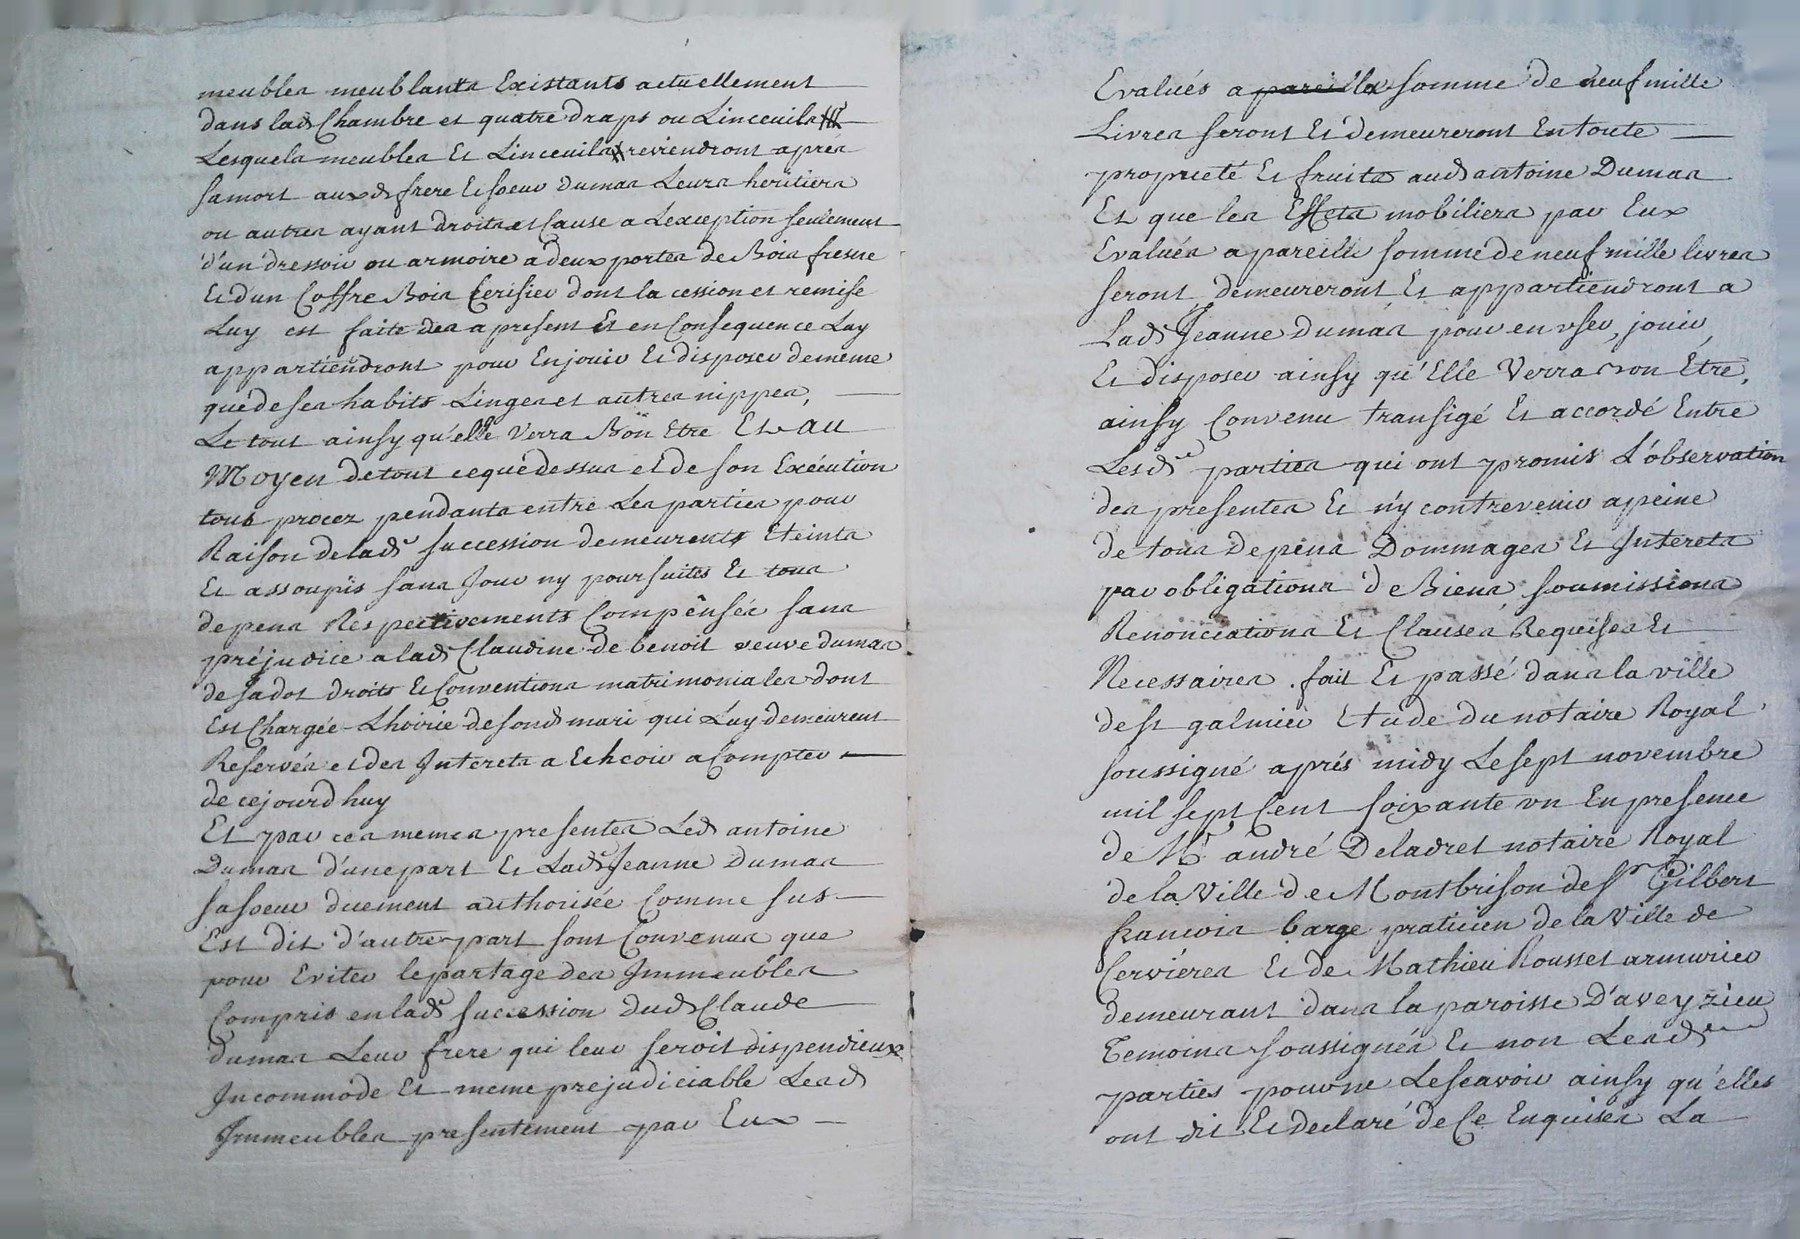 meubles meublants Existants actuellement
dans lad. Chambre et quatre draps ou Linceuils
Lesquels meubles Et Linceuils reviendront apres
sa mort auxd. frere Et soeur dumas Leurs heritiers
ou autres ayant droits et Cause a Lexception seulement
d'un dressoir ou armoire a deux portes de Bois fresne
Et d'un Coffre Bois Cerisier dont la cession et remise
Luy est faite des a present Et en Consequence Luy
appartiendront pour En jouir Et disposer de meme
que de ses habits Linges et autres nippes,
Le tout ainsy qu'elle Verra Bon Etre Et au
Moyen de tout ce que dessus et de son Exécution
tous procez pendants entre Les parties pour
Raison de lad. succession demeurents Eteints
Et assoupis sans Jour ny poursuites Et tous
depens Respectivements Compensés sans
préjudice a lad. Claudine de benoit veuve dumas
de sa dot droits Et Conventions matrimoniales dont
Est Chargée Lhoirie de sond. mari qui Luy demeurent
Reservés et des Interets a Echeoir a Compter
de cejourdhuy
Et par ces memes presentes Led. antoine
Dumas d'une part Et Lad. Jeanne Dumas
sa soeur duement authorisée Comme sus
Est dit d'autre part sont Convenus que
pour Eviter le partage des Immeubles
Compris en lad. succession dud. Claude
dumas Leur frere qui leur seroit dispendieux
Incommode Et meme prejudiciable Lesd.
Immeubles presentement par Eux
Evalués a pareille somme de neuf mille
Livres seront Et demeureront En toute
proprieté Et fruits aud. antoine Dumas
Et que les Effets mobiliers par Eux
Evalués a pareille somme de neuf mille livres
seront demeureront Et appartiendront a
Lad. Jeanne dumas pour en user, jouir,
Et disposer ainsy qu'Elle Verra Bon Etre,
ainsy Convenu transigé Et accordé Entre
Lesd. parties qui ont promis L'observation
des presentes Et n'y contrevenir a peine
de tous Depens Dommages Et Interets
par obligations de Biens soumissions
Renonciations Et Clauses Requises Et
Necessaires. fait Et passé dans la ville
de st galmier Etude du notaire Royal
soussigné aprés midy Le sept novembre
mil sept Cent soixante un En presence
de Me. andré Deladret notaire Royal
de la Ville de Montbrison de sr. Gilbert
francois Barge praticien de la Ville de
Cerviéres Et de Mathieu Rousset armurier
demeurant dans la paroisse D'aveyzieu
Temoins soussignés Et non Lesd.
parties pour ne Lescavoir ainsy qu'elles
ont dit Et declaré de Ce Enquises La